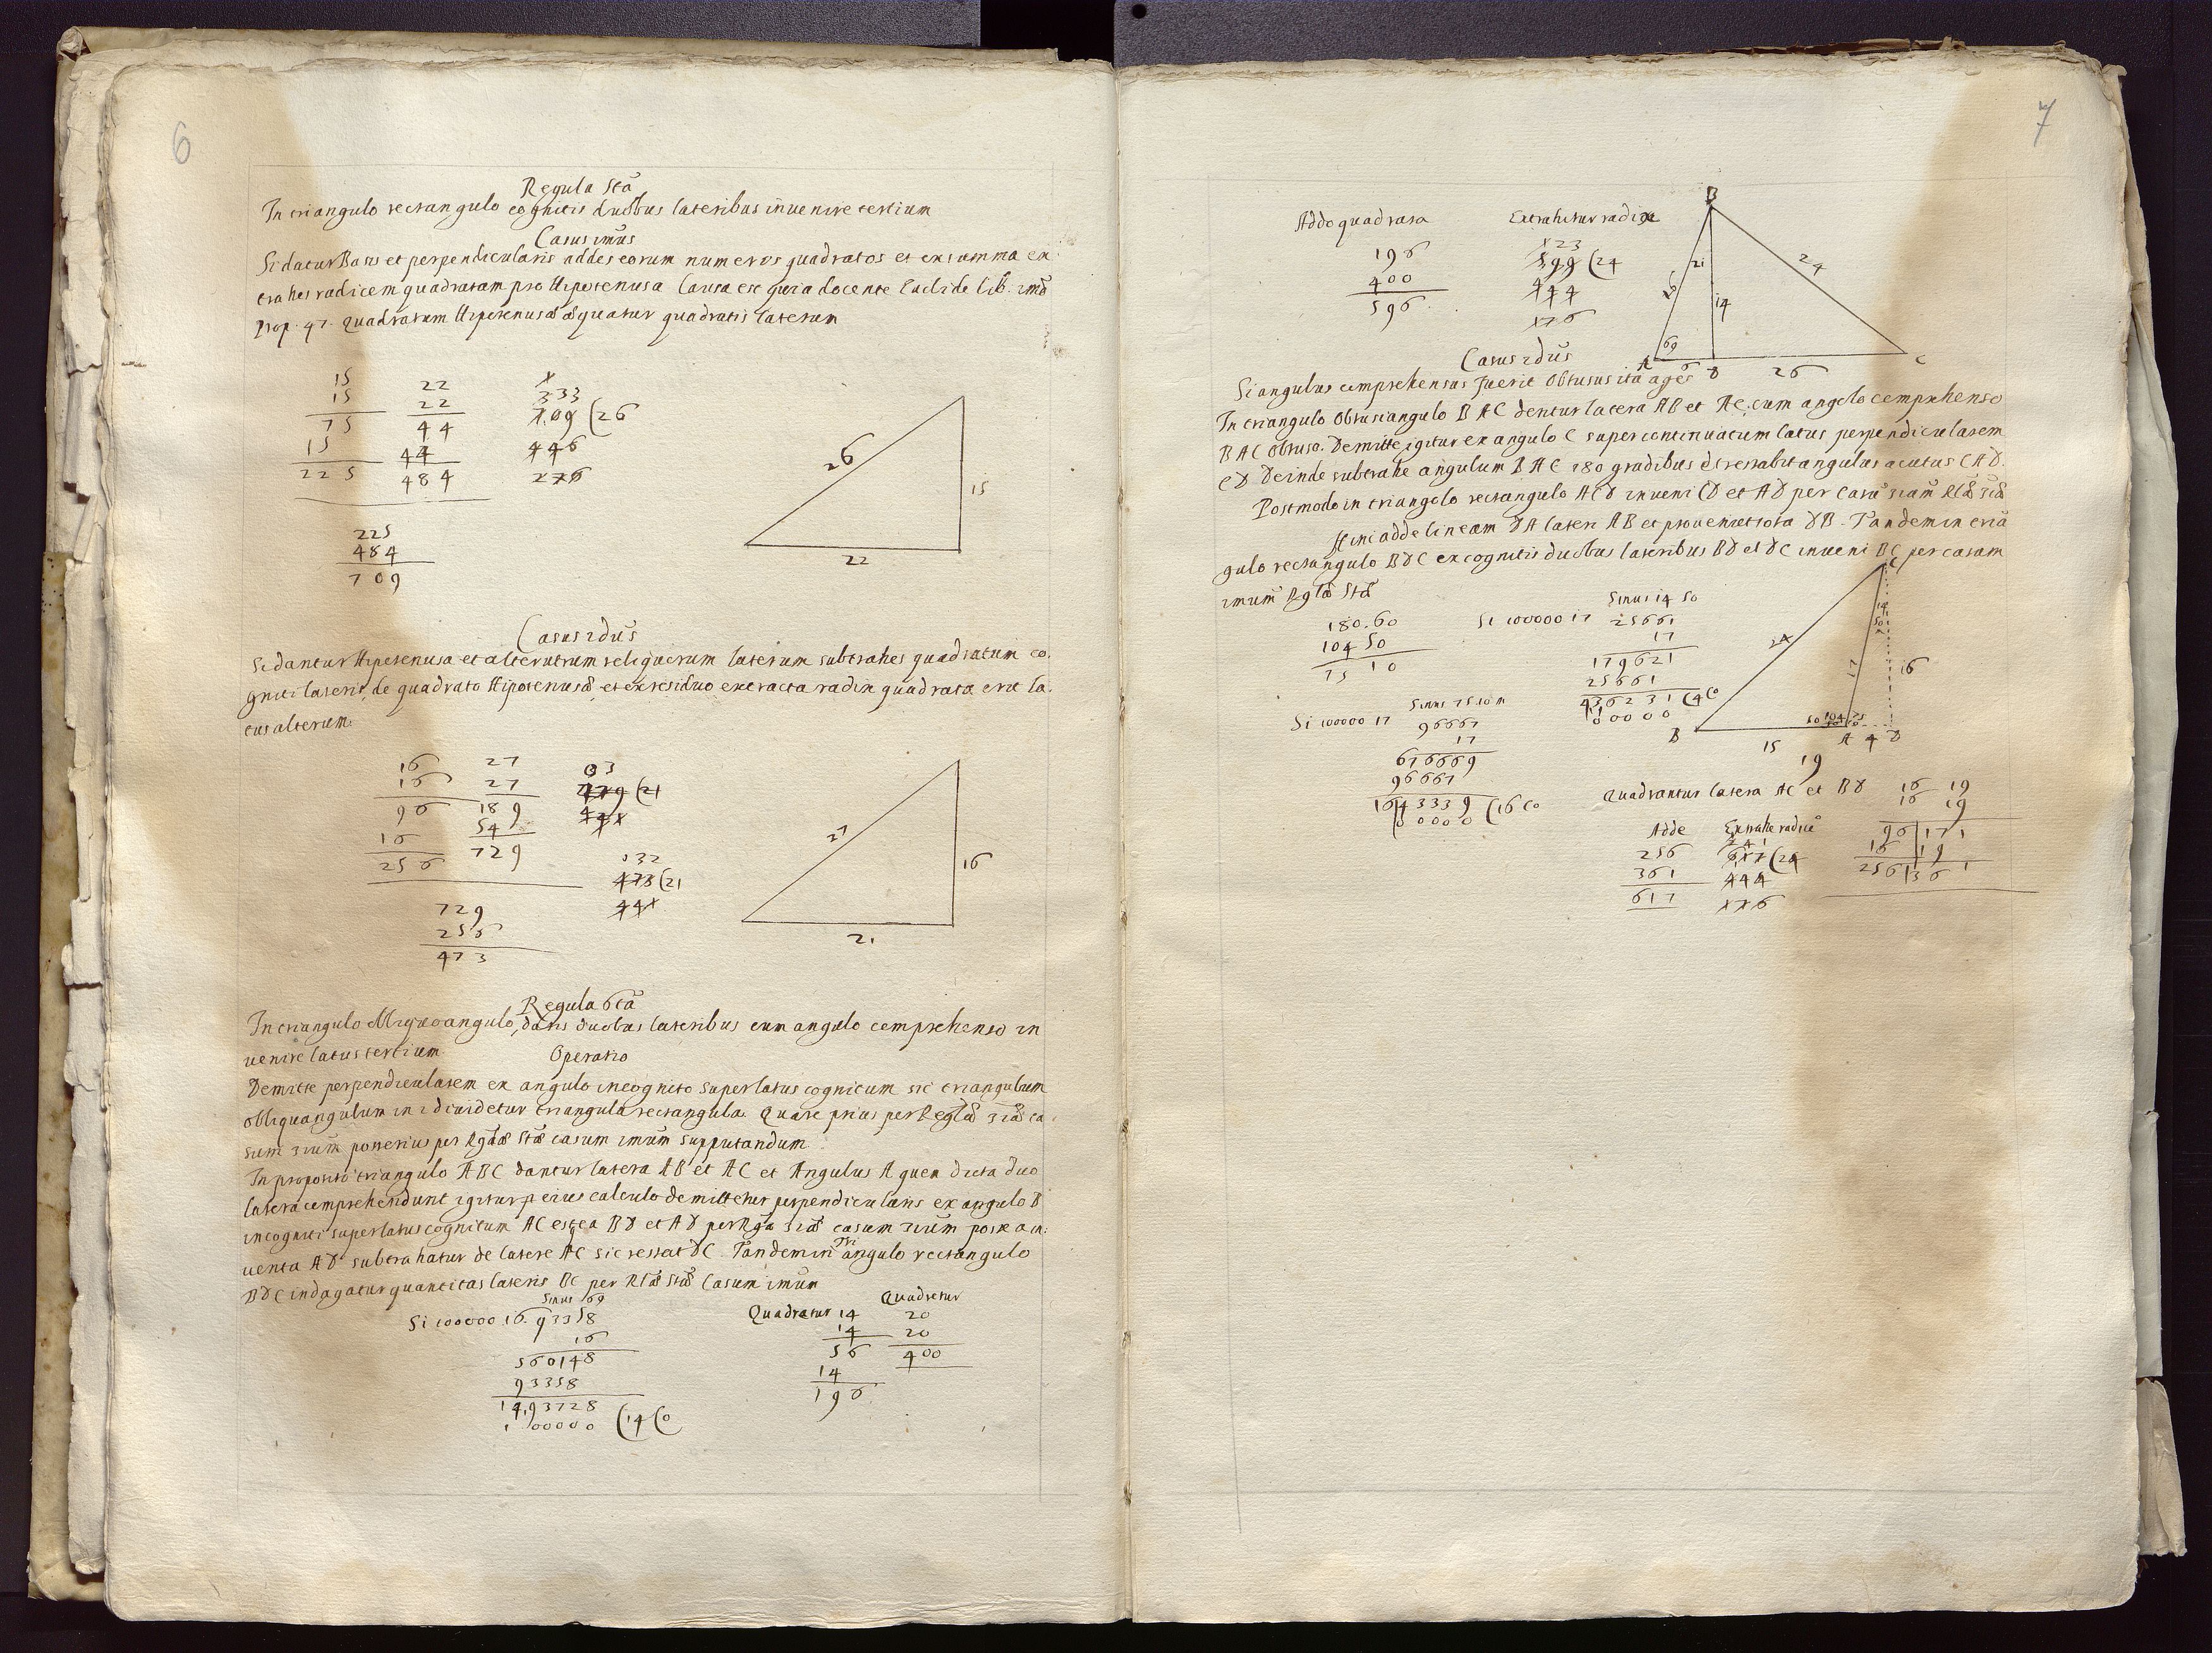 6
Regula 5tã
In triangulo rectangulo cognitis duobus lateribus invenire tertium
Casus 1mus
Si datur Basis et perpendicularis addes eorum numeros quadratos et ex summa ex
trahes radicem quadratam pro Hipotenusa Causa est quia docente Euclide lib. 1mo
Prop. 47. Quadratum Hipotenusæ æquatur quadratis laterum
15 22
15 22 333
75 44 709 (26
15 44 446
225 484 276
225
484
709
26
15
22
Casus 2dus
Si dantur Hipotenusa et alterutrum reliquorum laterum subtrahes quadratum co.
gniti lateris, de quadrato Hipotenusæ et ex residuo extracta radix quadrata erit la.
tus alterum.
16 27
16 27
96 189 (21
16 54 441
256 729
132
473 (21
441
729
256
473
27
16
21
Regula 6tã
In triangulo obliquoangulo, datis duobus lateribus cum angulo comprehenso in
venire latus tertium
Operatio
Demitte perpendicularem ex angulo incognito super latus cognitum sic triangulum
obliquangulum in 2 dividetur triangula rectangula. Quare prius per Reglã 3iæ ca
sum 3ium posterius per Rglæ 5tæ casum 1mum supputandum.
In proposito triangulo ABC dantur latera AB et AC et Angulus A quem dicta duo
latera comprehendunt igitur p eius calculo demittetur perpendicularis ex angulo B
incogniti super latus cognitum AC
uenta AD subtrahatur de latere AC sic restat DC. Tandem in Tri angulo rectangulo
BDC indagatur quantitas lateris BC per Rlæ 5tæ Casum 1mum
Sinus 69
Si 100000 16. 93358
16
560148
93358
1493728
100000 (14 (0
Quadratur 14
14
56
14
196
Quadretur
20
20
400
7
Addo quadrata
196
400
596
Extrahitur radix
123
599 (24
444
176
B
21
24
14
69
A 6 D 26 C
Casus 2dus
Si angulus comprehensus fuerit obtusus ita ages
In triangulo obtusiangulo BAC dentur latera AB et AC, cum angolo comprehenso
BAC obtuso. Demitte igitur ex angulo C super continuatum latus perpendicularem
CD Deinde subtrahe angulum BAC 180 gradibus et restabit angulus acutus CAD.
Postmodo in triangolo rectangulo ACD inveni CD et AD per
Hinc adde lineam DA lateri AB et proveniet tota DB. Tandem in triã
gulo rectangulo BDC ex cognitis duobus lateribus BD et DC inveni BC per casum
1mum Rglæ 5tæ
180.60
104 50
75 10
Si 100000 17
Sinus 14 50
25661
17
179621
25661
436231 (4 (0
00000
Si 100000 17
Sinus 75.10 m
96667
17
676669
96667
1643339
00000 (16 (0
C
24
14
50
17
16
50 104 75
B 15 A 4 D
19
Quadrantur latera AC et BD
16 19
16 19
96 171
16 19
256 361
Adde
256
361
617
Extrahe radicẽ
241
617 (24
444
176